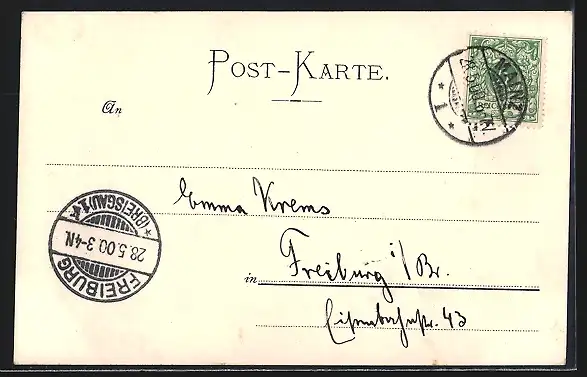 POST-KARTE.
MAINZ
* 1 *
An
Emma Krems
(BREISGAU) 1.
28.5.00.3-4N.
FREIBURG
in Freiburg i/Br.
Eisenbahnstr. 43